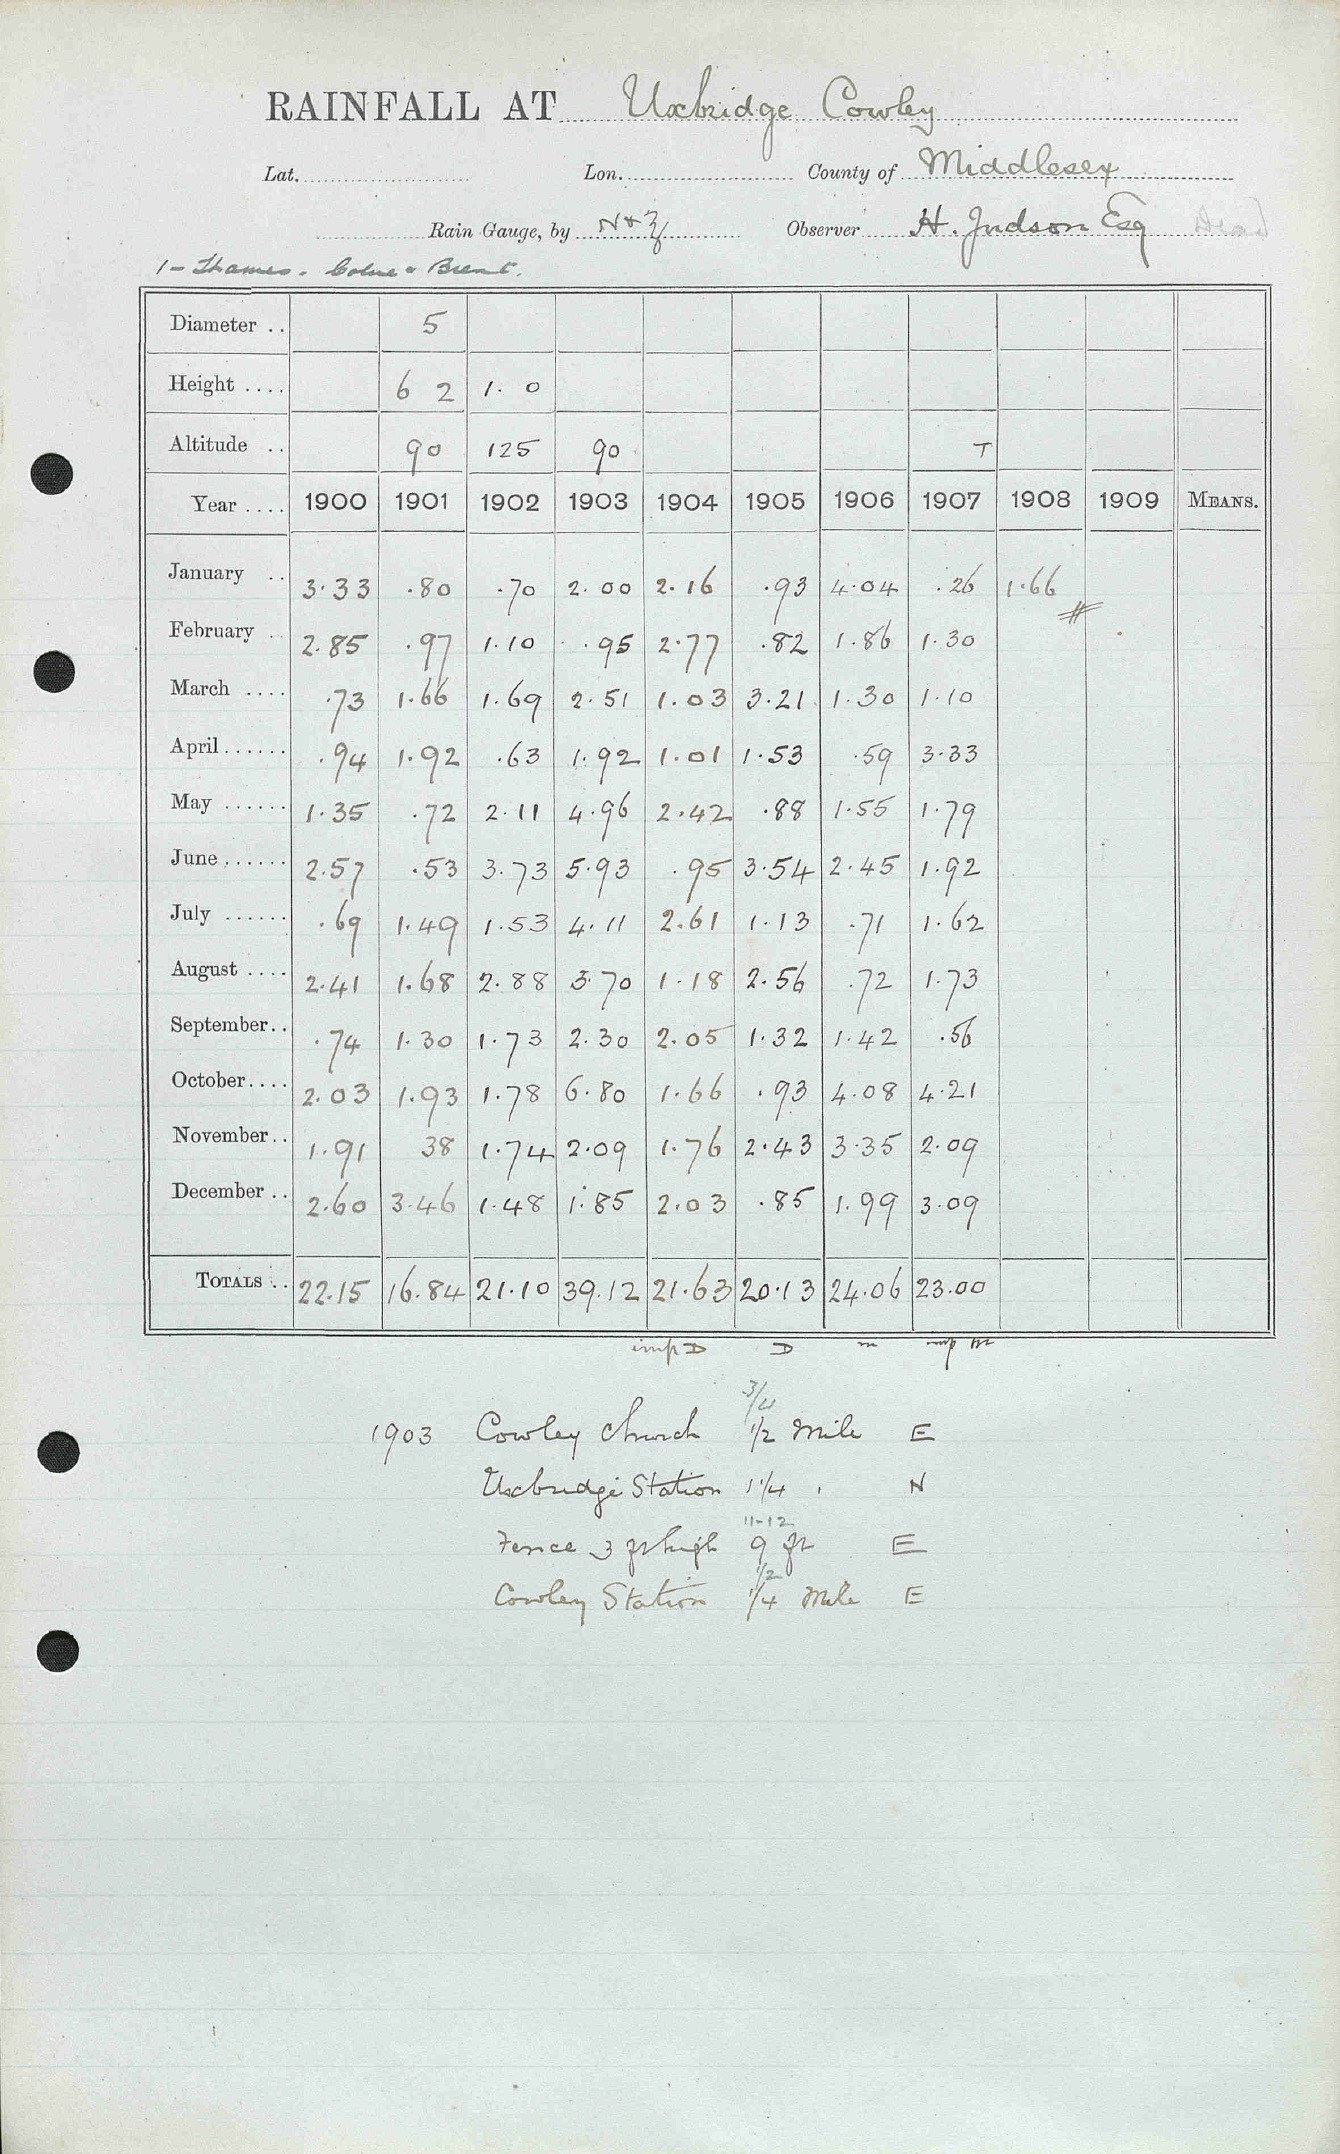 RAINFALL AT Uxbridge Cowley
Lat. Lon. County of Middlesex
Rain Gauge, by N & Z Observer H. Judson Esq Dead
1 - Thames. Colne & Brent.
Diameter .. 5
Height .... 6 2 1. 0
Altitude .. 90 125 90 T
Year .... 1900 1901 1902 1903 1904 1905 1906 1907 1908 1909 MEANS.
January .. 3.33 .80 .70 2.00 2.16 .93 4.04 .26 1.66
February .. 2.85 .97 1.10 .95 2.77 .82 1.86 1.30 #
March .... .73 1.66 1.69 2.51 1.03 3.21 1.30 1.10
April ...... .94 1.92 .63 1.92 1.01 1.53 .59 3.33
May ...... 1.35 .72 2.11 4.96 2.42 .88 1.55 1.79
June ...... 2.57 .53 3.73 5.93 .95 3.54 2.45 1.92
July ...... .69 1.49 1.53 4.11 2.61 1.13 .71 1.62
August .... 2.41 1.68 2.88 3.70 1.18 2.56 .72 1.73
September.. .74 1.30 1.73 2.30 2.05 1.32 1.42 .56
October.... 2.03 1.93 1.78 6.80 1.66 .93 4.08 4.21
November.. 1.91 38 1.74 2.09 1.76 2.43 3.35 2.09
December .. 2.60 3.46 1.48 1.85 2.03 .85 1.99 3.09
TOTALS .. 22.15 16.84 21.10 39.12 21.63 20.13 24.06 23.00
imp D D m imp M
3/4
1903 Cowley Church 1/2 Mile E
Uxbridge Station 1 1/4 " N
11-12
Fence 3 ft high 9 ft E
1/2
Cowley Station 1/4 Mile E